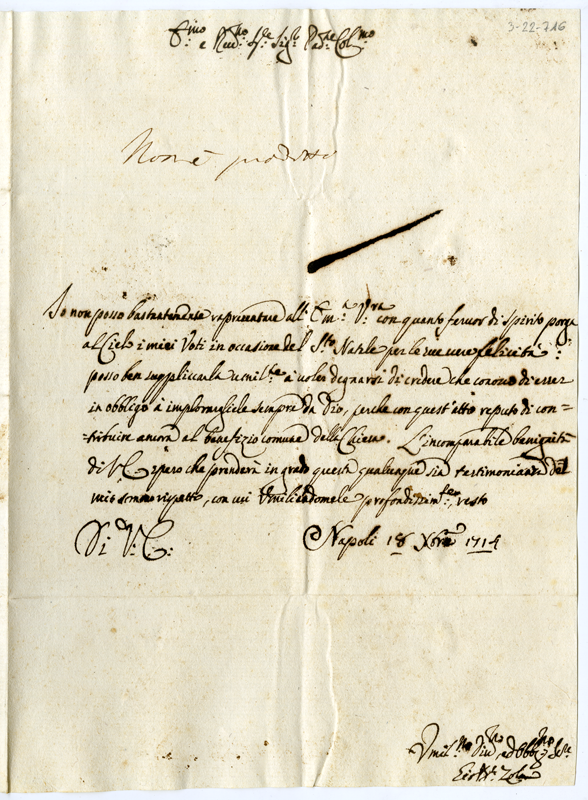 3-22-716
E.mo e Rev.mo Sig.r Padne Col.mo
Non è prodotto
Io non posso bastantemente rapresentare all' Em.a V.ra con quanto fervor di spirito porga
al Cielo i miei Voti in occasione del S.to Natale per le sue vere felicità:
posso ben suppliccarla umil.te a voler degnarsi di credere che conosco di esser
in obbligo à implorargliele sempre da Dio, perche con quest'atto reputo di con=
=tribuire ancora al benefizio comune della Chiesa. L'incomparabile benignità
di V.E. spero che prenderà in grado questa qualunque sia testimonianza del
mio sommo rispetto, con cui Umiliandomele profondissim.te resto
Di V.E.
Napoli 18 Xbre 1714
Umil.mo Div.mo ed Obblig.mo
Gio